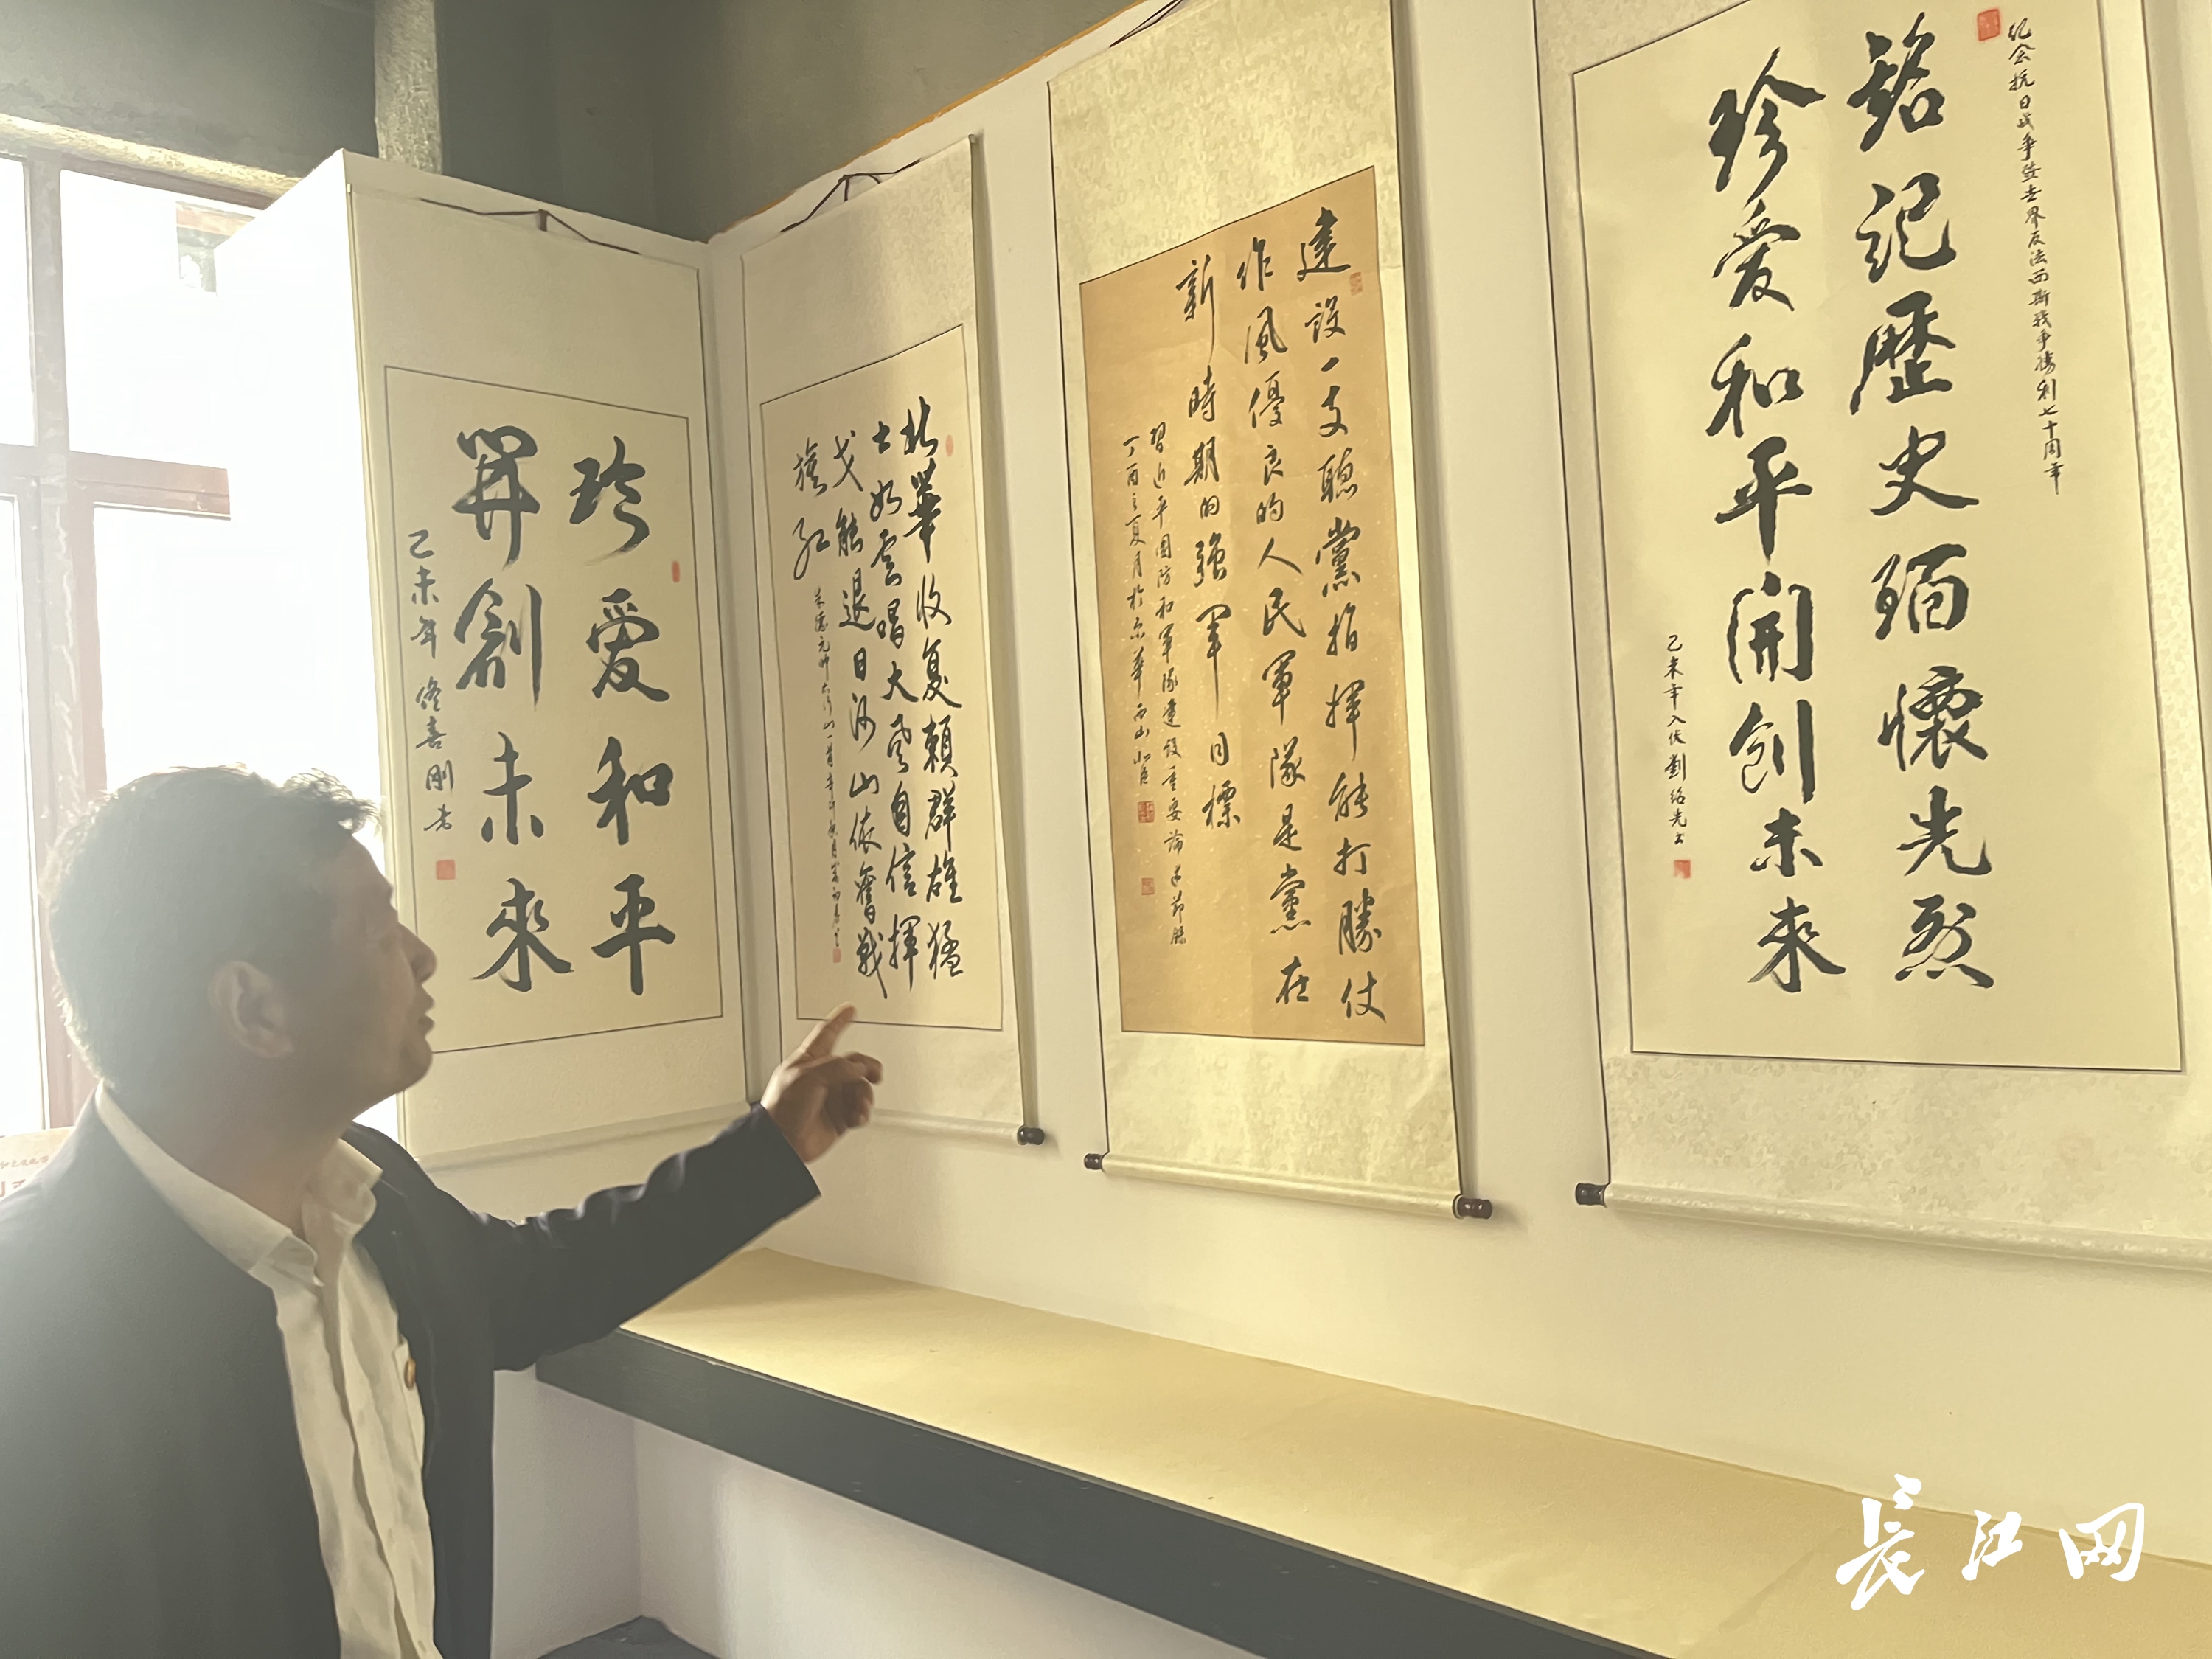 紀念抗日战争暨世界反法西斯战争勝利七十周年
銘記歷史緬懷先烈
珍爱和平開創未來
乙未年入伏劉绍先書
建設一支聽黨指揮能打勝仗
作風優良的人民軍隊是黨在
新時期的强軍目標
習近平國防和軍隊建設重要論述節錄
丁酉之夏月於京華西山
北華收复賴群雄猛
士如雲唱大风自信揮
戈能退日河山依舊戰
旗红
珍爱和平
開創未來
乙未年 佟喜剛书
長江网